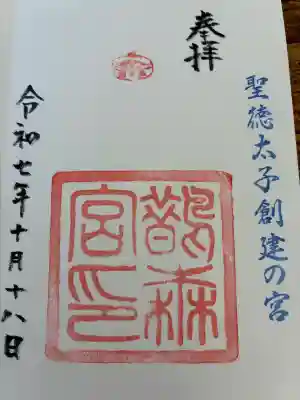 聖徳太子創建の宮
奉拝
鵲森宮印
令和七年十月十八日